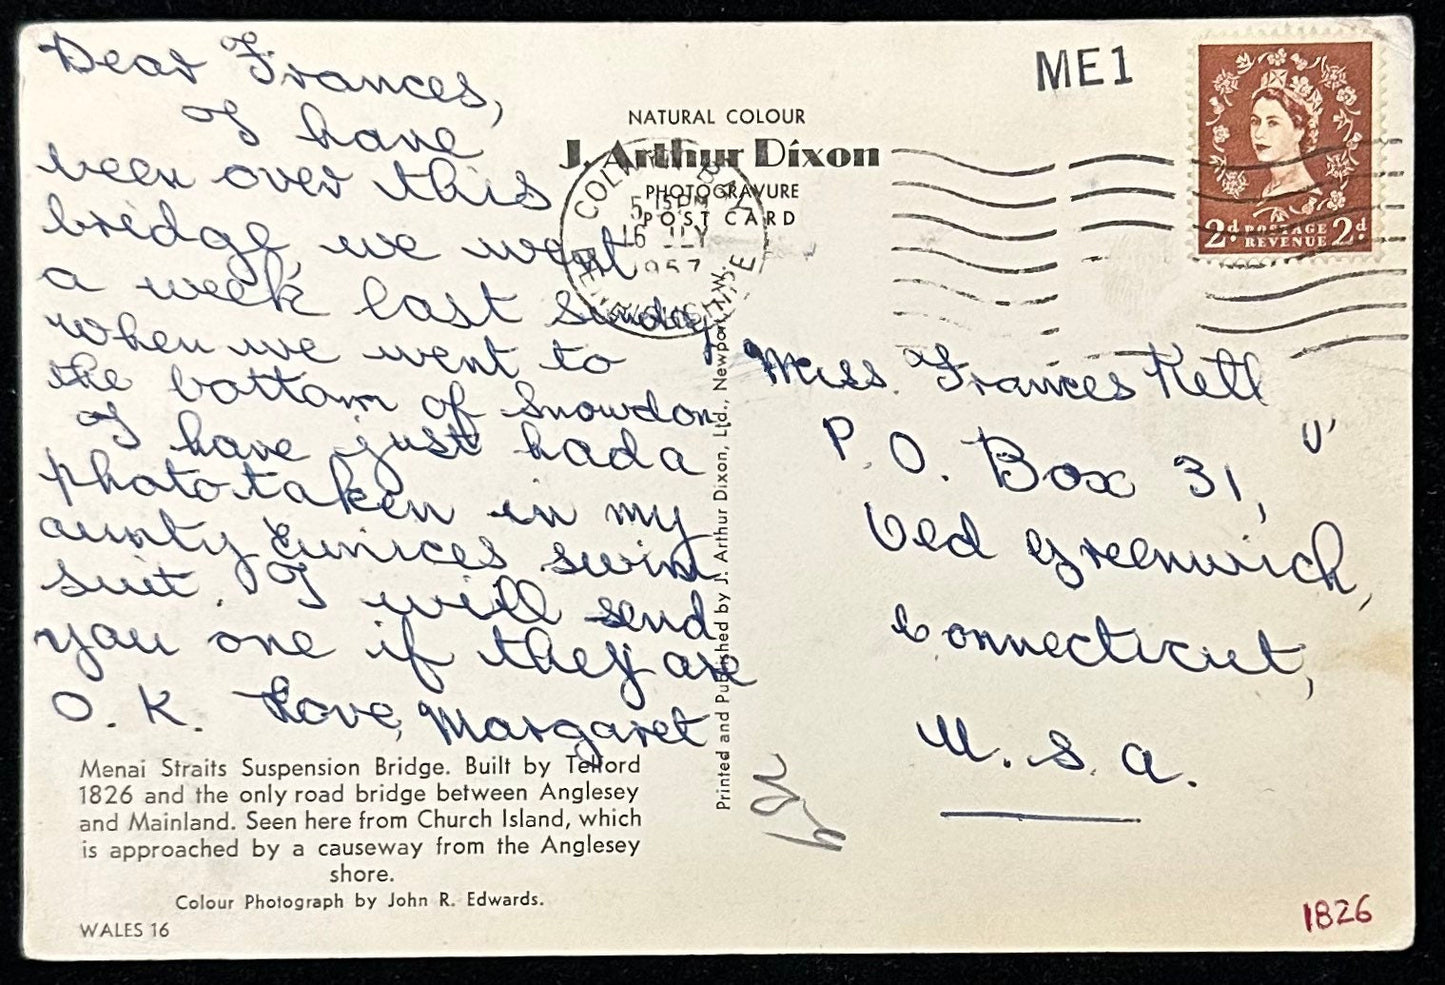 Dear Frances,
I have
been over this
bridge, we went
a week last Sunday
when we went to
the bottom of Snowdon.
I have just had a
photo taken in my
aunty Eunices swim
suit. I will send
you one if they are
O. K. Love, Margaret
Menai Straits Suspension Bridge. Built by Telford
1826 and the only road bridge between Anglesey
and Mainland. Seen here from Church Island, which
is approached by a causeway from the Anglesey
shore.
Colour Photograph by John R. Edwards.
WALES 16
NATURAL COLOUR
J. Arthur Dixon
PHOTOGRAVURE
POST CARD
COLWYN BAY
5 15PM
16 JLY
1957
DENBIGHSHIRE
Printed and Published by J. Arthur Dixon, Ltd., Newport, I.W.
ME1
2d POSTAGE 2d
REVENUE
Miss. Frances Kell
P. O. Box 31,
Old Greenwich,
Connecticut,
U. S. A.
1826